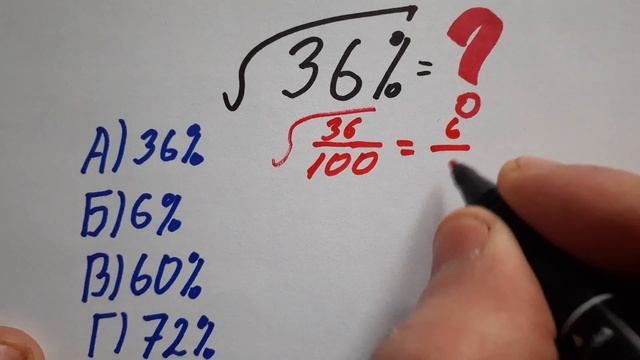 √36% = ?
√36/100 = 6/
А) 36%
Б) 6%
В) 60%
Г) 72%